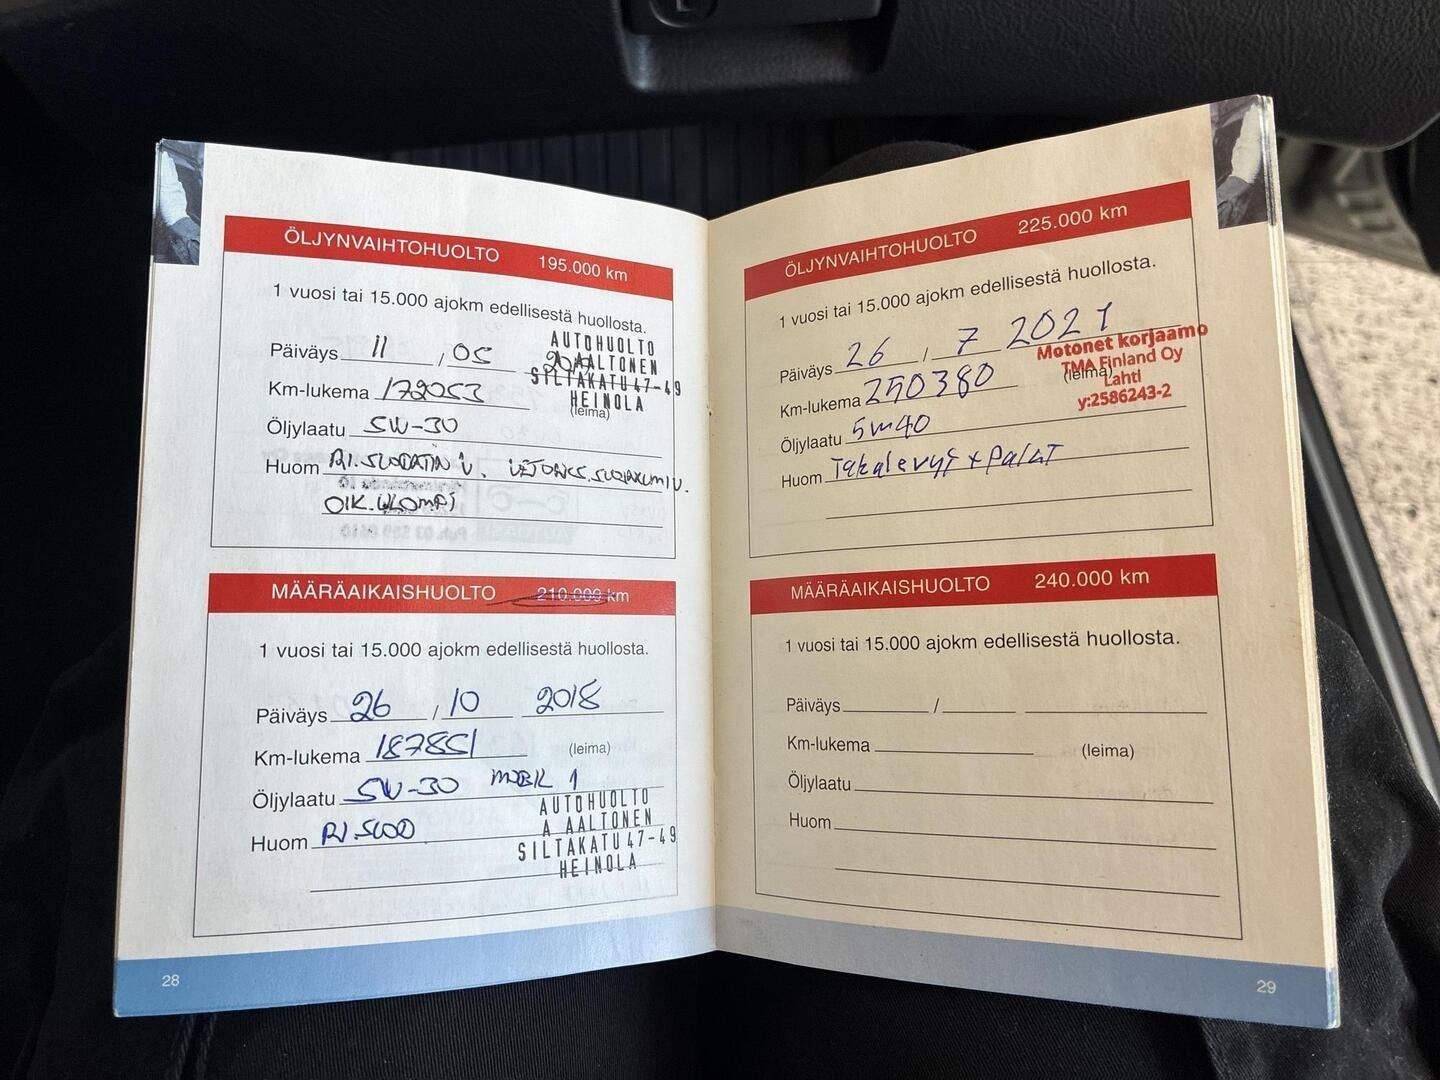 ÖLJYNVAIHTOHUOLTO 195.000 km
1 vuosi tai 15.000 ajokm edellisestä huollosta.
Päiväys 11 / 05
AUTOHUOLTO
A AALTONEN
SILTAKATU 47-49
HEINOLA
Km-lukema 172053
(leima)
Öljylaatu 5W-30
Huom RI.SUODATIN V.
OIK.
MÄÄRÄAIKAISHUOLTO 210.000 km
1 vuosi tai 15.000 ajokm edellisestä huollosta.
Päiväys 26 / 10 2018
Km-lukema 187851 (leima)
Öljylaatu 5W-30 MOBIL 1
Huom RI.SUOD
AUTOHUOLTO
A AALTONEN
SILTAKATU 47-49
HEINOLA
28
ÖLJYNVAIHTOHUOLTO 225.000 km
1 vuosi tai 15.000 ajokm edellisestä huollosta.
Päiväys 26 / 7 2021
Motonet korjaamo
TMA Finland Oy
Lahti
y:2586243-2
Km-lukema 250380 (leima)
Öljylaatu 5w40
Huom Takalevyt + Palat
MÄÄRÄAIKAISHUOLTO 240.000 km
1 vuosi tai 15.000 ajokm edellisestä huollosta.
Päiväys /
Km-lukema (leima)
Öljylaatu
Huom
29